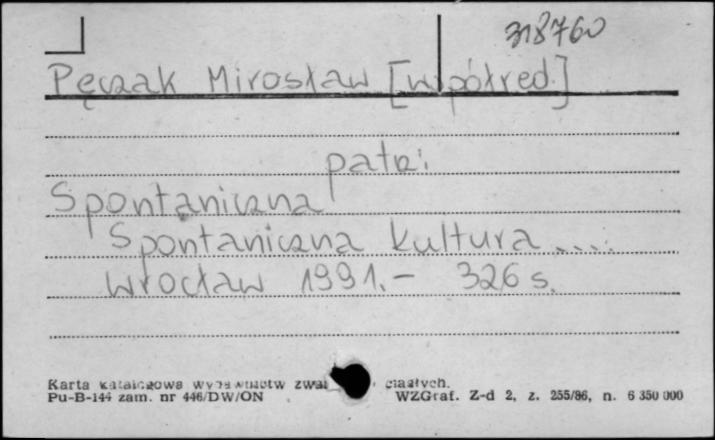 318760
Pęczak Mirosław [współred.]
patrz:
Spontaniczna
Spontaniczna kultura ....
Wrocław 1991.- 326 s.
Karta katalogowa wydawnictw zwar ciągłych.
Pu-B-144 zam. nr 446/DW/ON WZGraf. Z-d 2, z. 255/86, n. 6 350 000